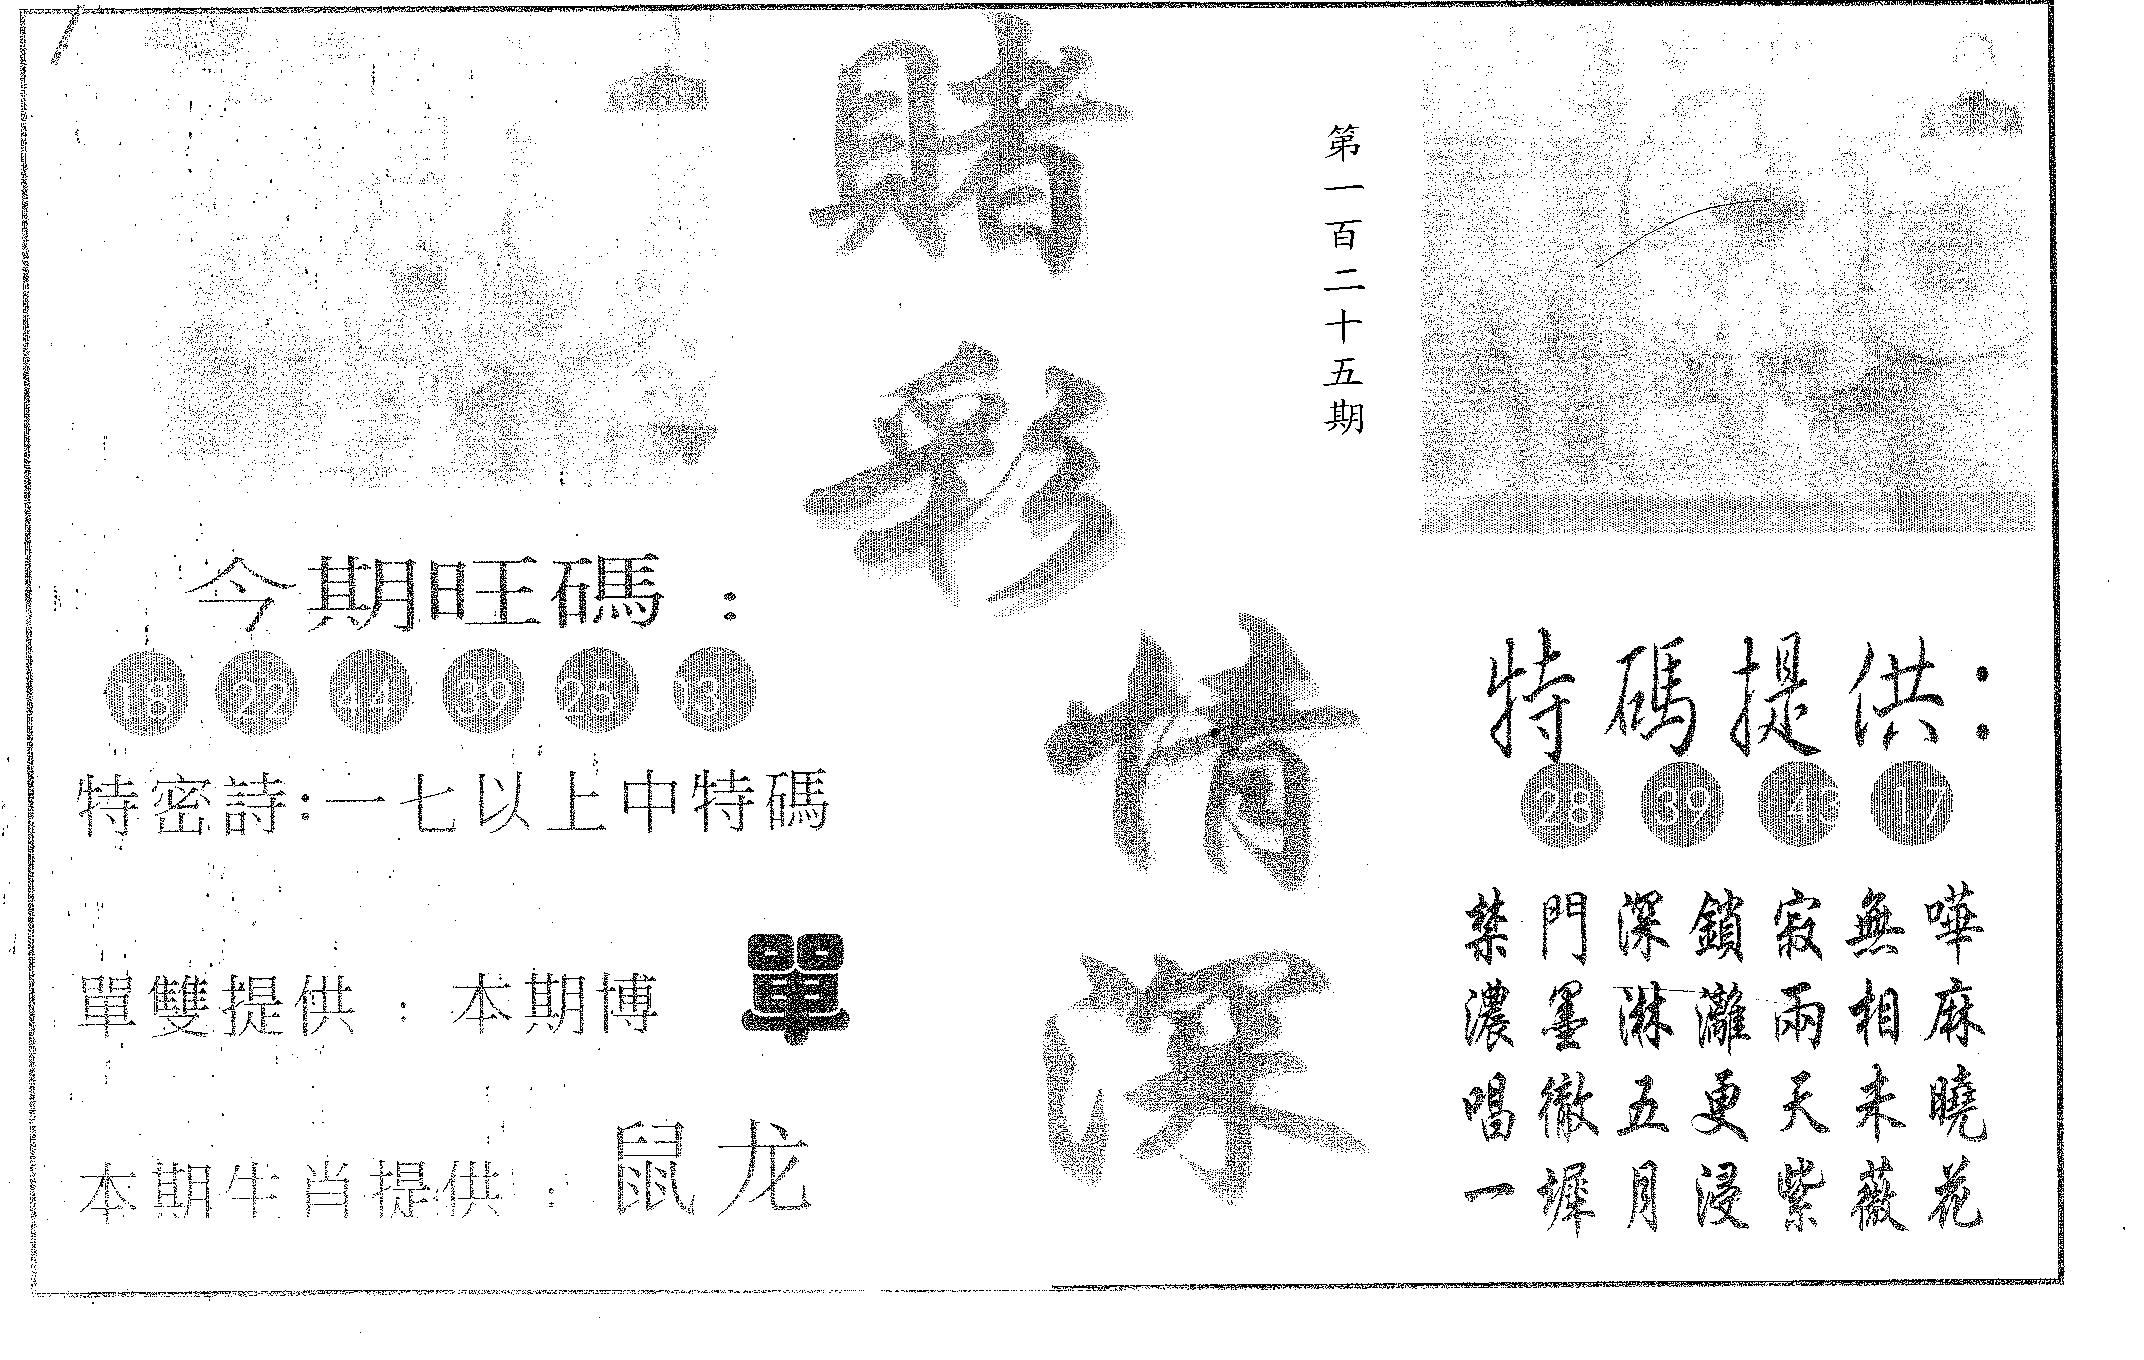 賭彩情深
第一百二十五期
今期旺碼：
18 22 44 39 25 03
特密詩：一七以上中特碼
單雙提供：本期博 單
本期生肖提供：鼠龙
特碼提供：
28 39 43 17
禁門深鎖寂無嘩
濃墨淋灕兩相麻
唱徹五更天未曉
一墀月浸紫薇花